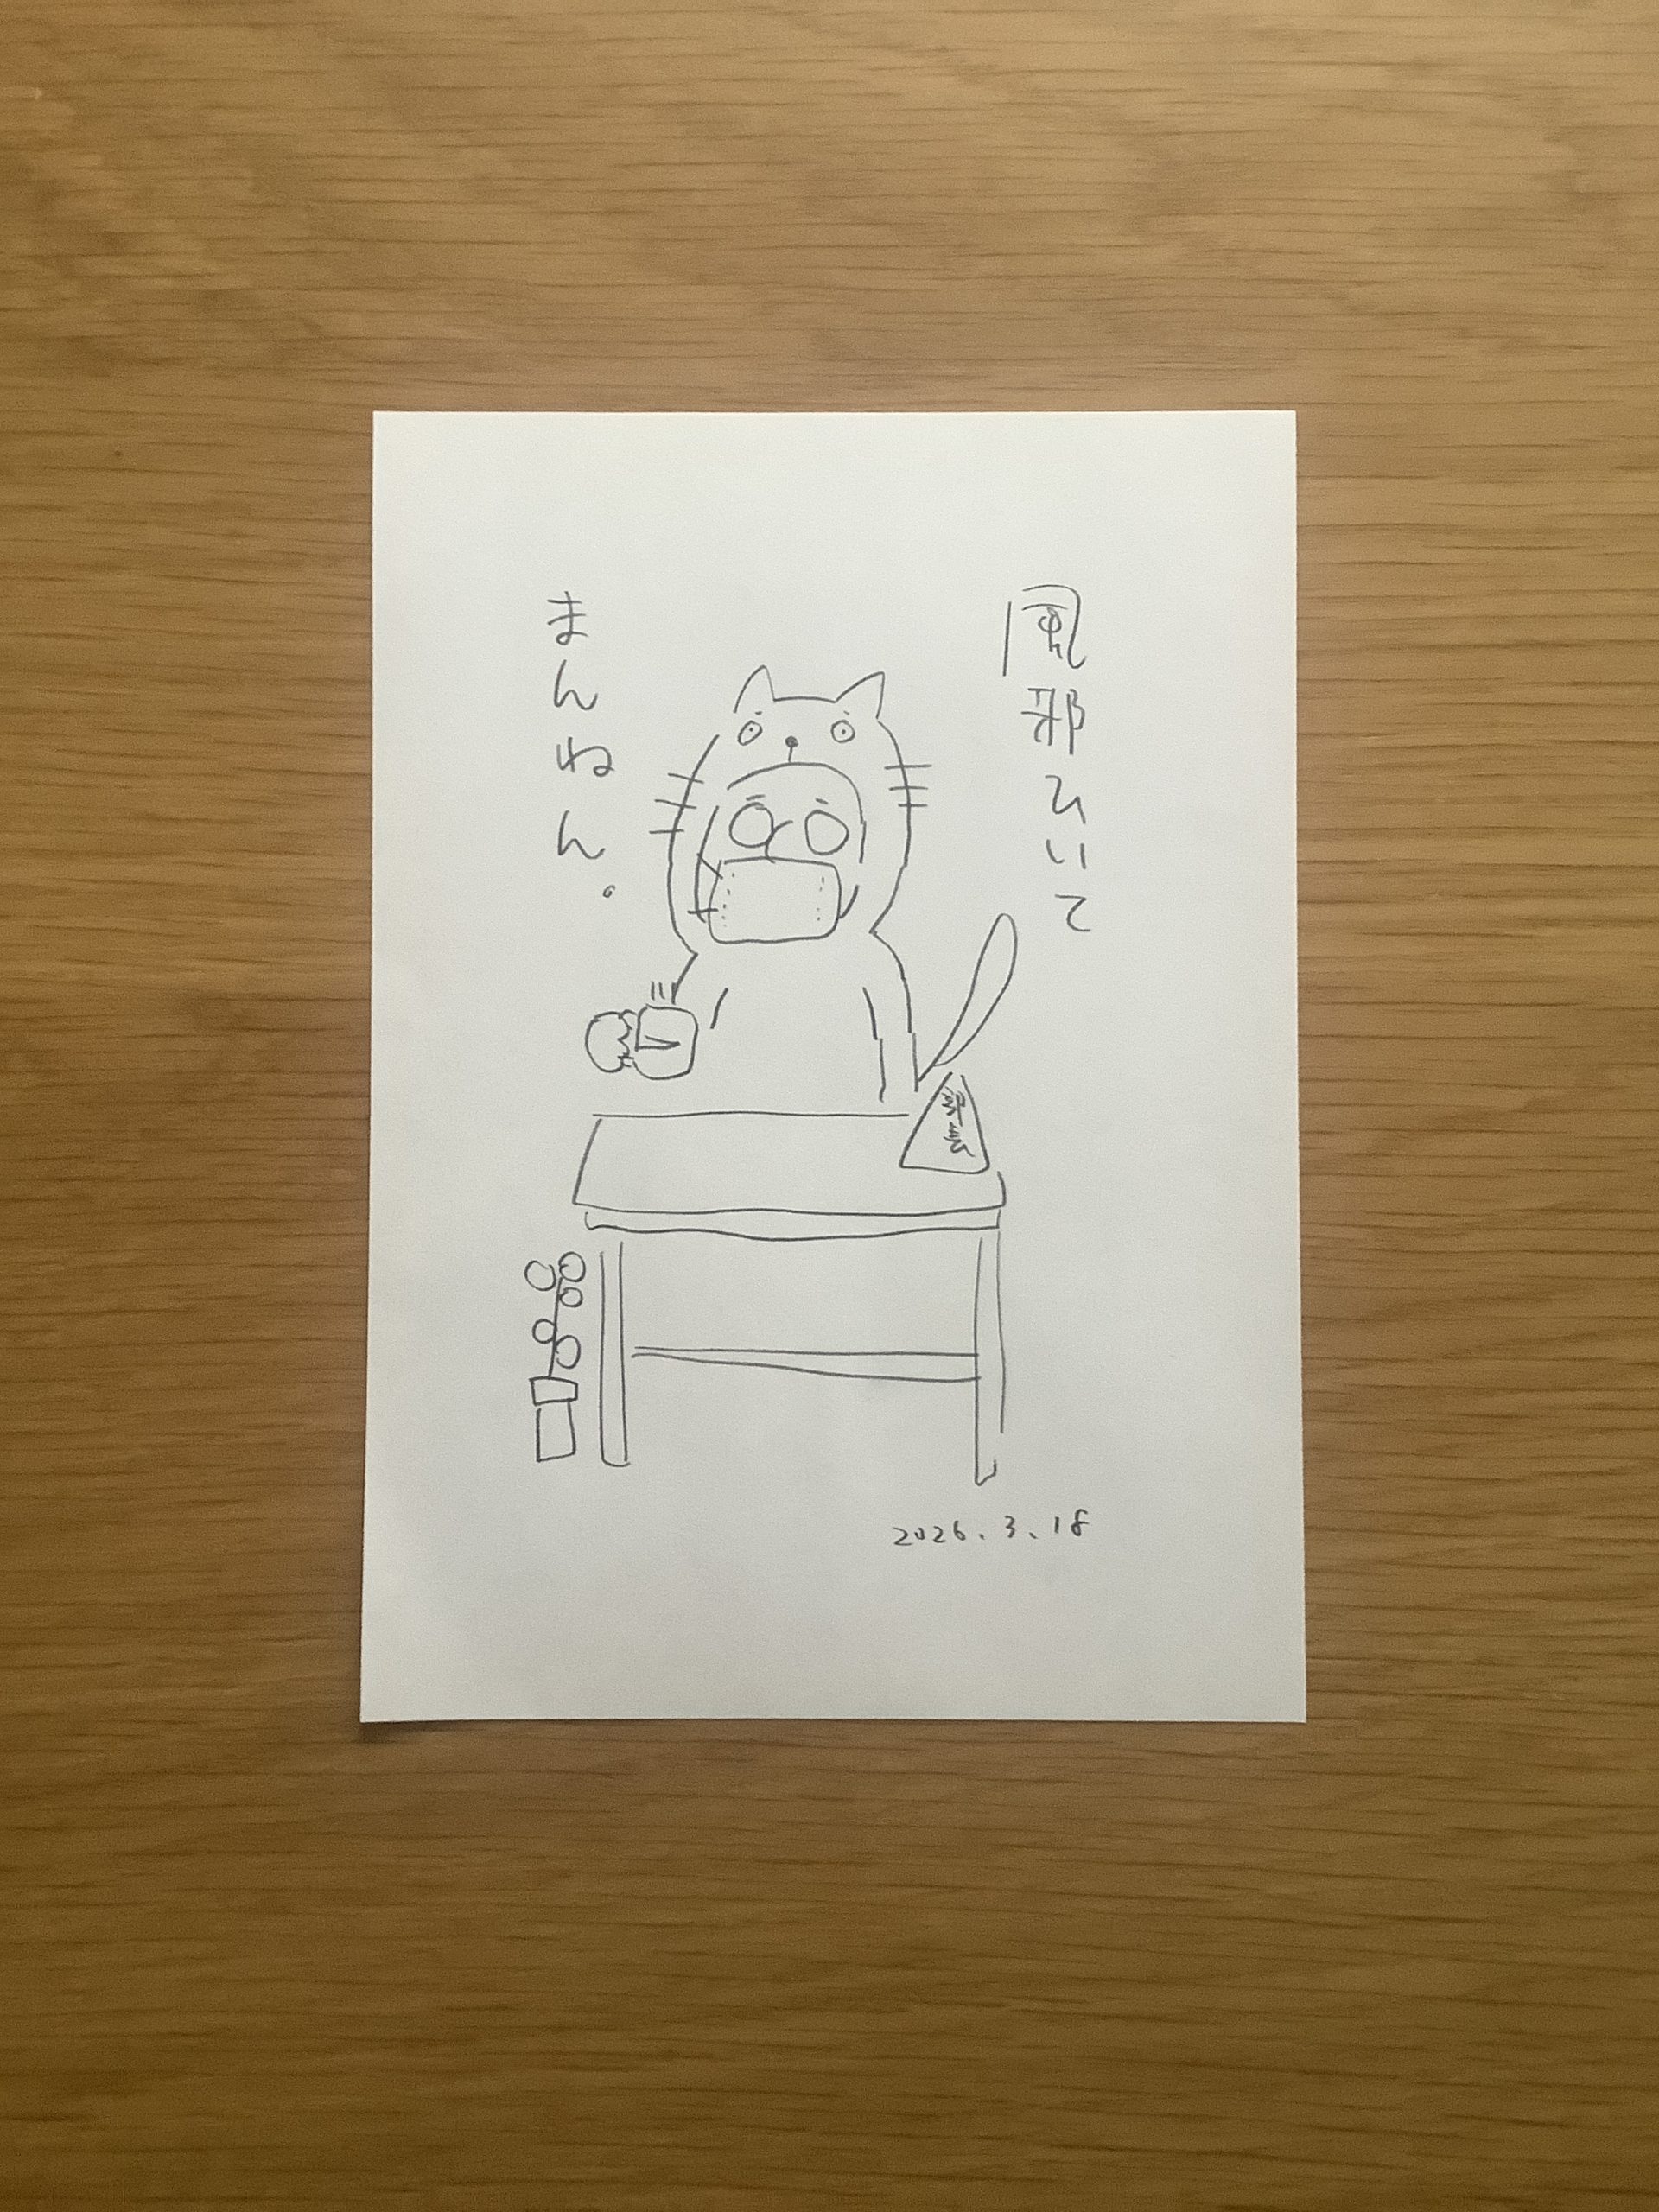 風邪ひいて
まんねん。
2026.3.18